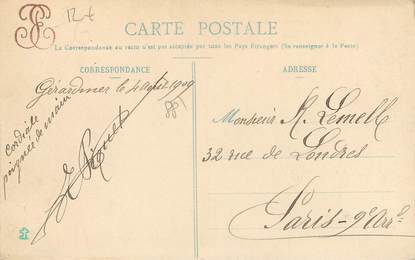 12 €
CARTE POSTALE
La Correspondance au recto n'est pas acceptée par tous les Pays Etrangers (Se renseigner à la Poste)
CORRESPONDANCE
Gérardmer le 4 août 1909
Cordiale
poignée de main
ADRESSE
Monsieur R. Lemell
32 rue de Londres
Paris - 9e Arrt